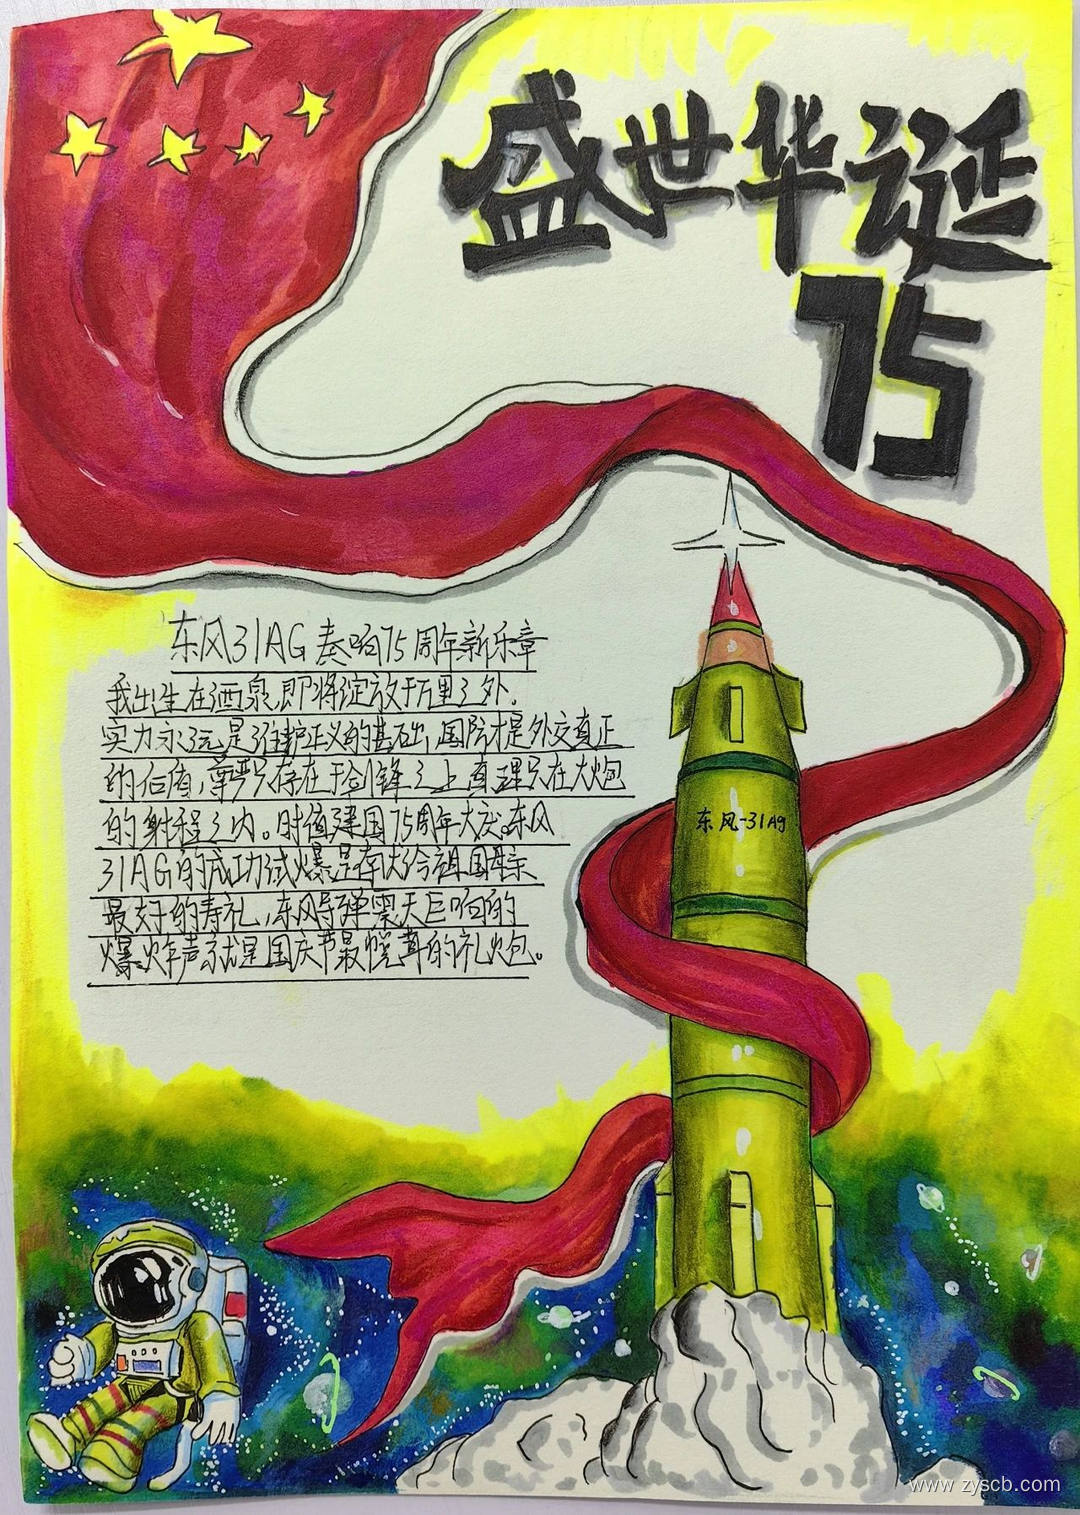 盛世华诞
75
东风31AG奏响75周年新乐章
我出生在酒泉,即将绽放于万里之外.
实力永远是维护正义的基础,国防才是外交真正
的后盾,尊严只存在于剑锋之上真理只在大炮
的射程之内。时值建国75周年大庆。东风
31AG的成功试爆是献给祖国母亲
最好的寿礼,东风导弹震天巨响的
爆炸声就是国庆节最悦耳的礼炮。
东风-31Ag
www.zyscb.com